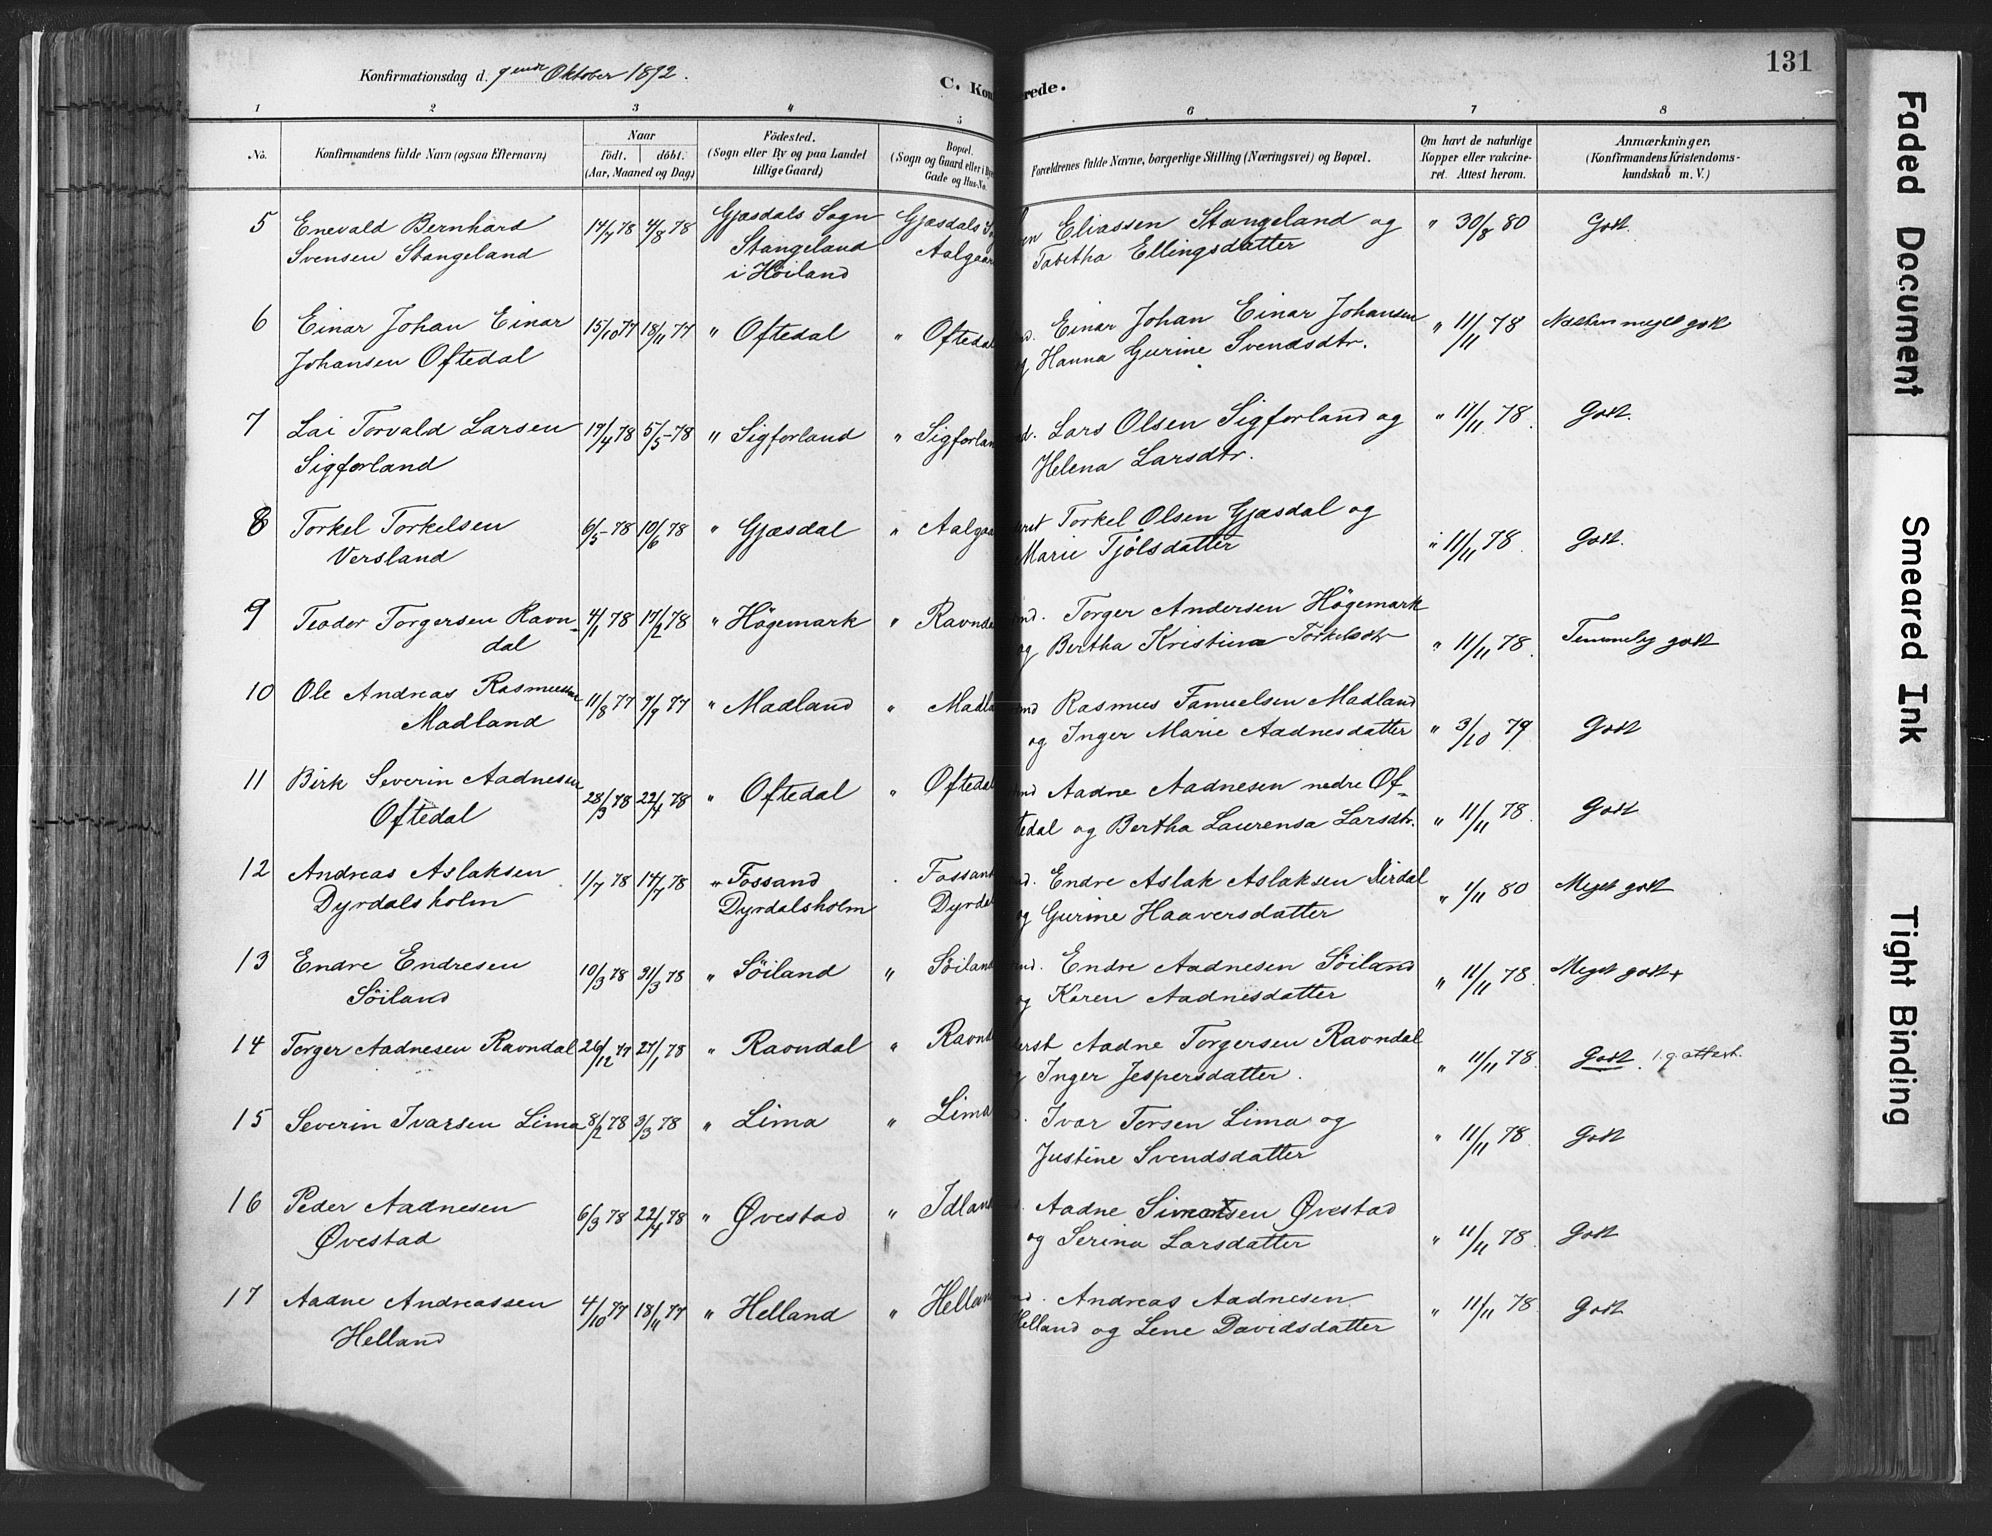 Konfirmationsdag d. 9ende Oktober 1892.
C. Kon rede.
131
1 2 3 4 5 6 7 8
No.
Konfirmandens fulde Navn (ogsaa Efternavn)
Naar
födt. döbt.
(Aar, Maaned og Dag)
Födested.
(Sogn eller By og paa Landet
tillige Gaard)
Bopæl.
(Sogn og Gaard eller i By
Gade og Hus-No.
Forældrenes fulde Navne, borgerlige Stilling (Næringsvei) og Bopæl.
Om havt de naturlige
Kopper eller vakcine-
ret. Attest herom.
Anmærkninger,
(Konfirmandens Kristendoms-
kundskab m. V.)
5 Enevald Bernhard 14/7 78 4/8 78 Gjæsdals Sogn Gjæsdals Eliassen Stangeland og " 30/8 80 Godt.
Svensen Stangeland Stangeland Aalgaar Tabitha Ellingsdatter
i Høiland
6 Einar Johan Einar 15/10 77 18/11 77 " Oftedal " Oftedal Einar Johan Einar Johansen " 11/11 78 Næsten meget godt
Johansen Oftedal og Hanna Gurine Svendsdtr.
7 Lai Torvald Larsen 19/4 78 5/5 78 " Sigforland " Sigforlan Lars Olsen Sigforland og " 11/11 78. Godt.
Sigforland Helena Larsdtr.
8 Torkel Torkelsen 6/5 78 10/6 78 " Gjæsdal " Aalgaa Torkel Olsen Gjæsdal og " 11/11 78. Godt.
Versland Marie Tjölsdatter
9 Teodor Torgersen Ravn- 4/1 78 17/2 78 " Högemark " Ravnda Torger Andersen Högemark
dal og Bertha Kristina Torkelsdtr " 11/11 78. Temmelig godt
10 Ole Andreas Rasmussen 11/8 77 9/9 77 " Madland " Madla Rasmus Samuelsen Madland
Madland og Inger Marie Aadnesdatter " 3/10 79 Godt
11 Birk Severin Aadnesen 28/3 78 22/4 78 " Oftedal " Oftedal Aadne Aadnesen nedre Of-
Oftedal tedal og Bertha Laurensa Larsdtr. " 11/11 78. Godt
12 Andreas Aslaksen 1/7 78 14/7 78 " Fossand Fossand Endre Aslak Aslaksen Dirdal " 1/11 80 Meget godt
Dyrdalsholm Dyrdalsholm Dyrdal og Gurine Haaversdatter
13 Endre Endresen 10/3 78 31/3 78 " Söiland " Söiland Endre Aadnesen Söiland " 11/11 78 Meget godt +
Söiland og Karen Aadnesdatter
14 Torger Aadnesen Ravndal 26/12 77 27/1 78 " Ravndal " Ravnd Aadne Torgersen Ravndal " 11/11 78 Godt.
og Inger Jespersdatter.
15 Severin Ivarsen Lima 8/2 78 3/3 78 " Lima " Lima Ivar Torsen Lima og " 11/11 78. Godt
Justine Svendsdatter
16 Peder Aadnesen 6/3 78 22/4 78 " Øvestad " Idland Aadne Simonsen Øvestad
Øvestad og Serina Larsdatter " 11/11 78 Godt
17 Aadne Andreassen 4/10 77 18/11 77 " Helland " Hellan Andreas Aadnesen " 11/11 78. Godt
Helland Helland og Lene Davidsdatter
Faded Document
Smeared Ink
Tight Binding